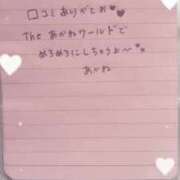 口コミありがとぉ♥♥
The あかねワールドで
めろめろにしちゃうよ〜♥
あかね